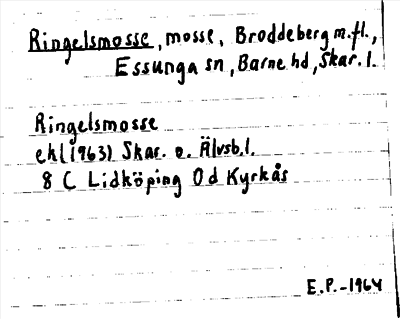 Ringelsmosse, mosse, Broddeberg m.fl.,
Essunga sn, Barne hd, Skar. l.
Ringelsmosse
ekl(1963) Skar. o. Älvsb.l.
8 C Lidköping 0d Kyrkås
E.P.-1964